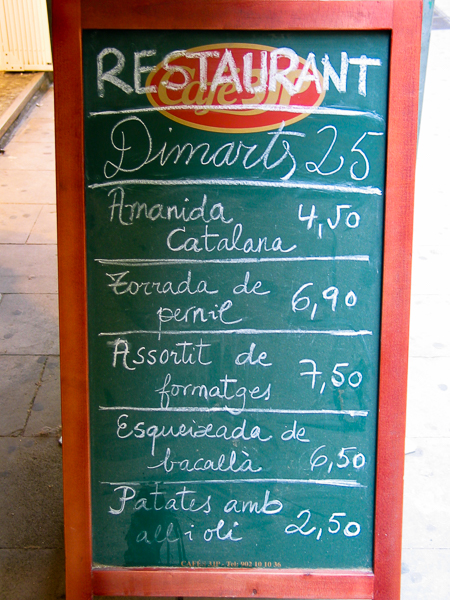 RESTAURANT
Dimarts 25
Amanida 4,50
Catalana
Torrada de
pernil 6,90
Assortit de
formatges 7,50
Esqueixada de
bacallà 6,50
Patates amb
all i oli 2,50
Tel: 902 10 10 36